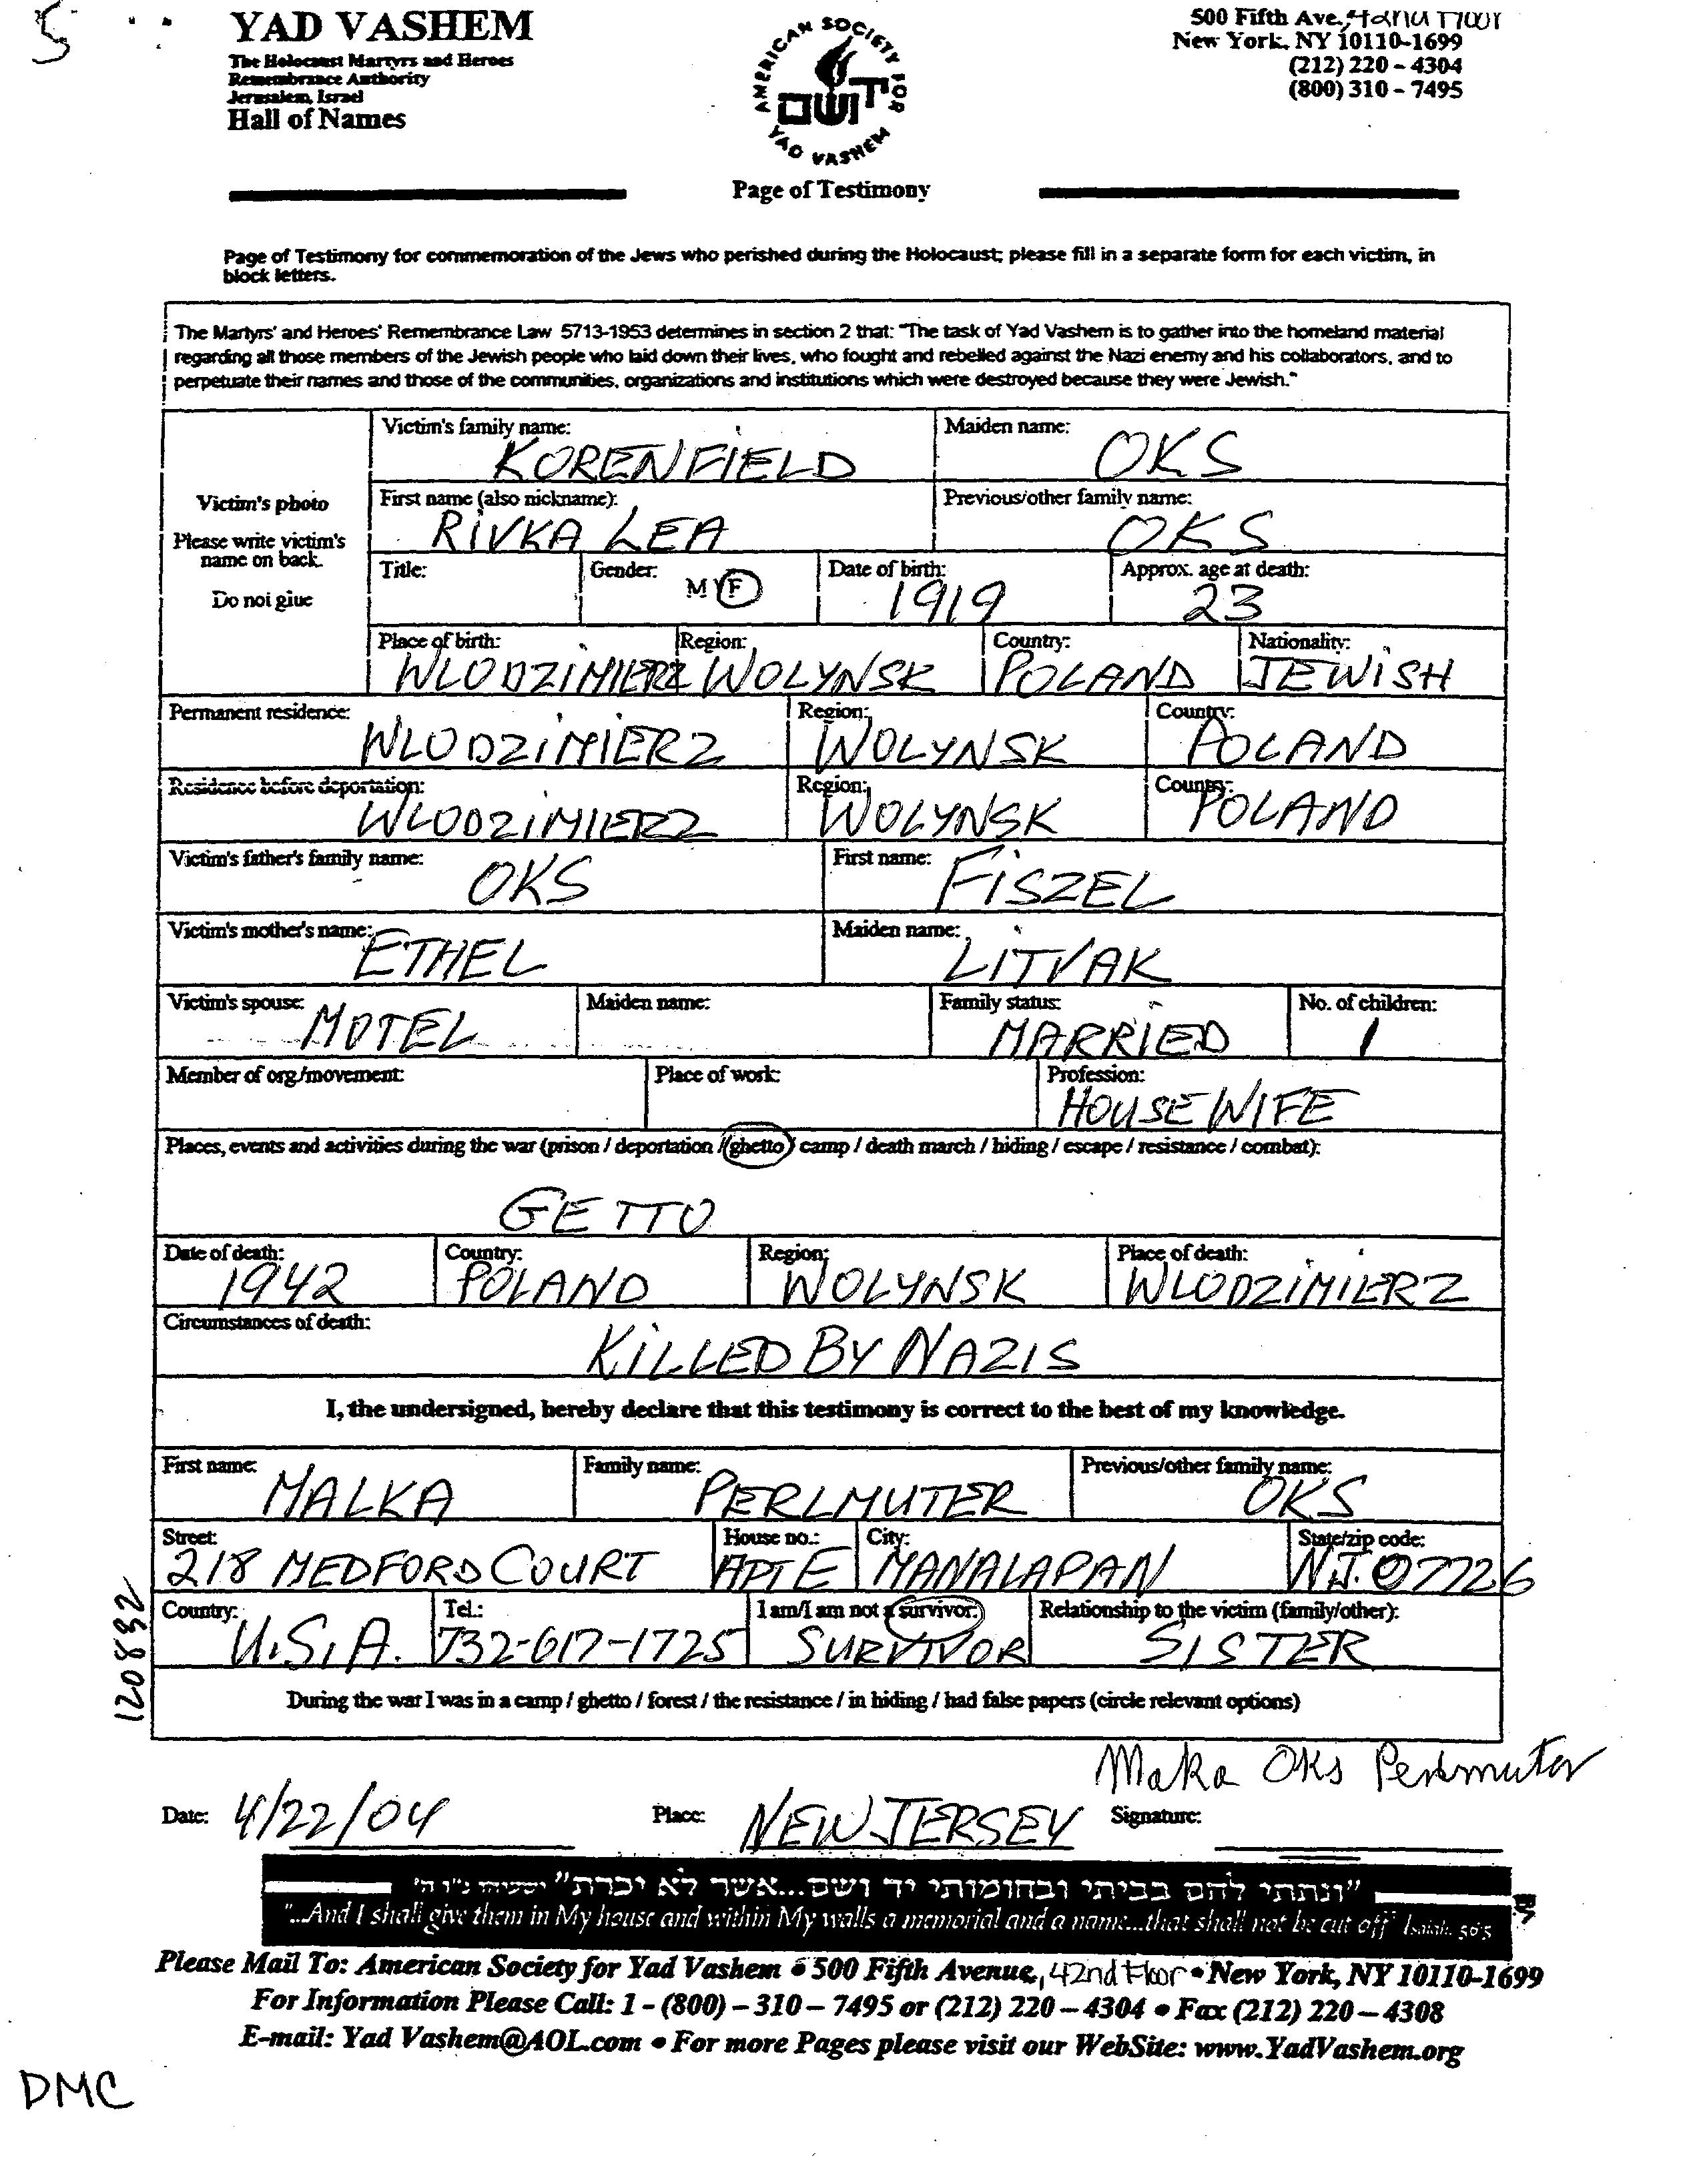 5
YAD VASHEM
The Holocaust Martyrs and Heroes
Remembrance Authority
Jerusalem, Israel
Hall of Names
AMERICAN SOCIETY FOR
YAD VASHEM
Page of Testimony
500 Fifth Ave.,
New York, NY 10110-1699
(212) 220 - 4304
(800) 310 - 7495
Page of Testimony for commemoration of the Jews who perished during the Holocaust; please fill in a separate form for each victim, in
block letters.
The Martyrs' and Heroes' Remembrance Law 5713-1953 determines in section 2 that: "The task of Yad Vashem is to gather into the homeland material
regarding all those members of the Jewish people who laid down their lives, who fought and rebelled against the Nazi enemy and his collaborators, and to
perpetuate their names and those of the communities, organizations and institutions which were destroyed because they were Jewish."
Victim's photo
Please write victim's
name on back.
Do not glue
Victim's family name: KORENFIELD Maiden name: OKS
First name (also nickname): RIVKA LEA Previous/other family name: OKS
Title: Gender: M / F Date of birth: 1919 Approx. age at death: 23
Place of birth: WLODZIMIERZ Region: WOLYNSK Country: POLAND Nationality: JEWISH
Permanent residence: WLODZIMIERZ Region: WOLYNSK Country: POLAND
Residence before deportation: WLODZIMIERZ Region: WOLYNSK Country: POLAND
Victim's father's family name: OKS First name: FISZEL
Victim's mother's name: ETHEL Maiden name: LITVAK
Victim's spouse: MOTEL Maiden name: Family status: MARRIED No. of children: 1
Member of org/movement: Place of work: Profession: HOUSEWIFE
Places, events and activities during the war (prison / deportation / ghetto / camp / death march / hiding / escape / resistance / combat):
GETTO
Date of death: 1942 Country: POLAND Region: WOLYNSK Place of death: WLODZIMIERZ
Circumstances of death: KILLED BY NAZIS
I, the undersigned, hereby declare that this testimony is correct to the best of my knowledge.
First name: MALKA Family name: PERLMUTER Previous/other family name: OKS
Street: 218 MEDFORD COURT House no.: APT E City: MANALAPAN State/zip code: N.J. 07726
Country: U.S.A. Tel.: 732-617-1725 I am/I am not a survivor: SURVIVOR Relationship to the victim (family/other): SISTER
During the war I was in a camp / ghetto / forest / the resistance / in hiding / had false papers (circle relevant options)
120832
Malka Oks Perlmuter
Date: 4/22/04 Place: NEW JERSEY Signature:
"ונתתי להם בביתי ובחומותי יד ושם...אשר לא יכרת" ישעיהו נ"ו ה'
"...And I shall give them in My house and within My walls a memorial and a name...that shall not be cut off" Isaiah. 56:5
Please Mail To: American Society for Yad Vashem • 500 Fifth Avenue, 42nd Floor • New York, NY 10110-1699
For Information Please Call: 1 - (800) – 310 – 7495 or (212) 220 – 4304 • Fax (212) 220 – 4308
E-mail: Yad Vashem@AOL.com • For more Pages please visit our WebSite: www.YadVashem.org
DMC